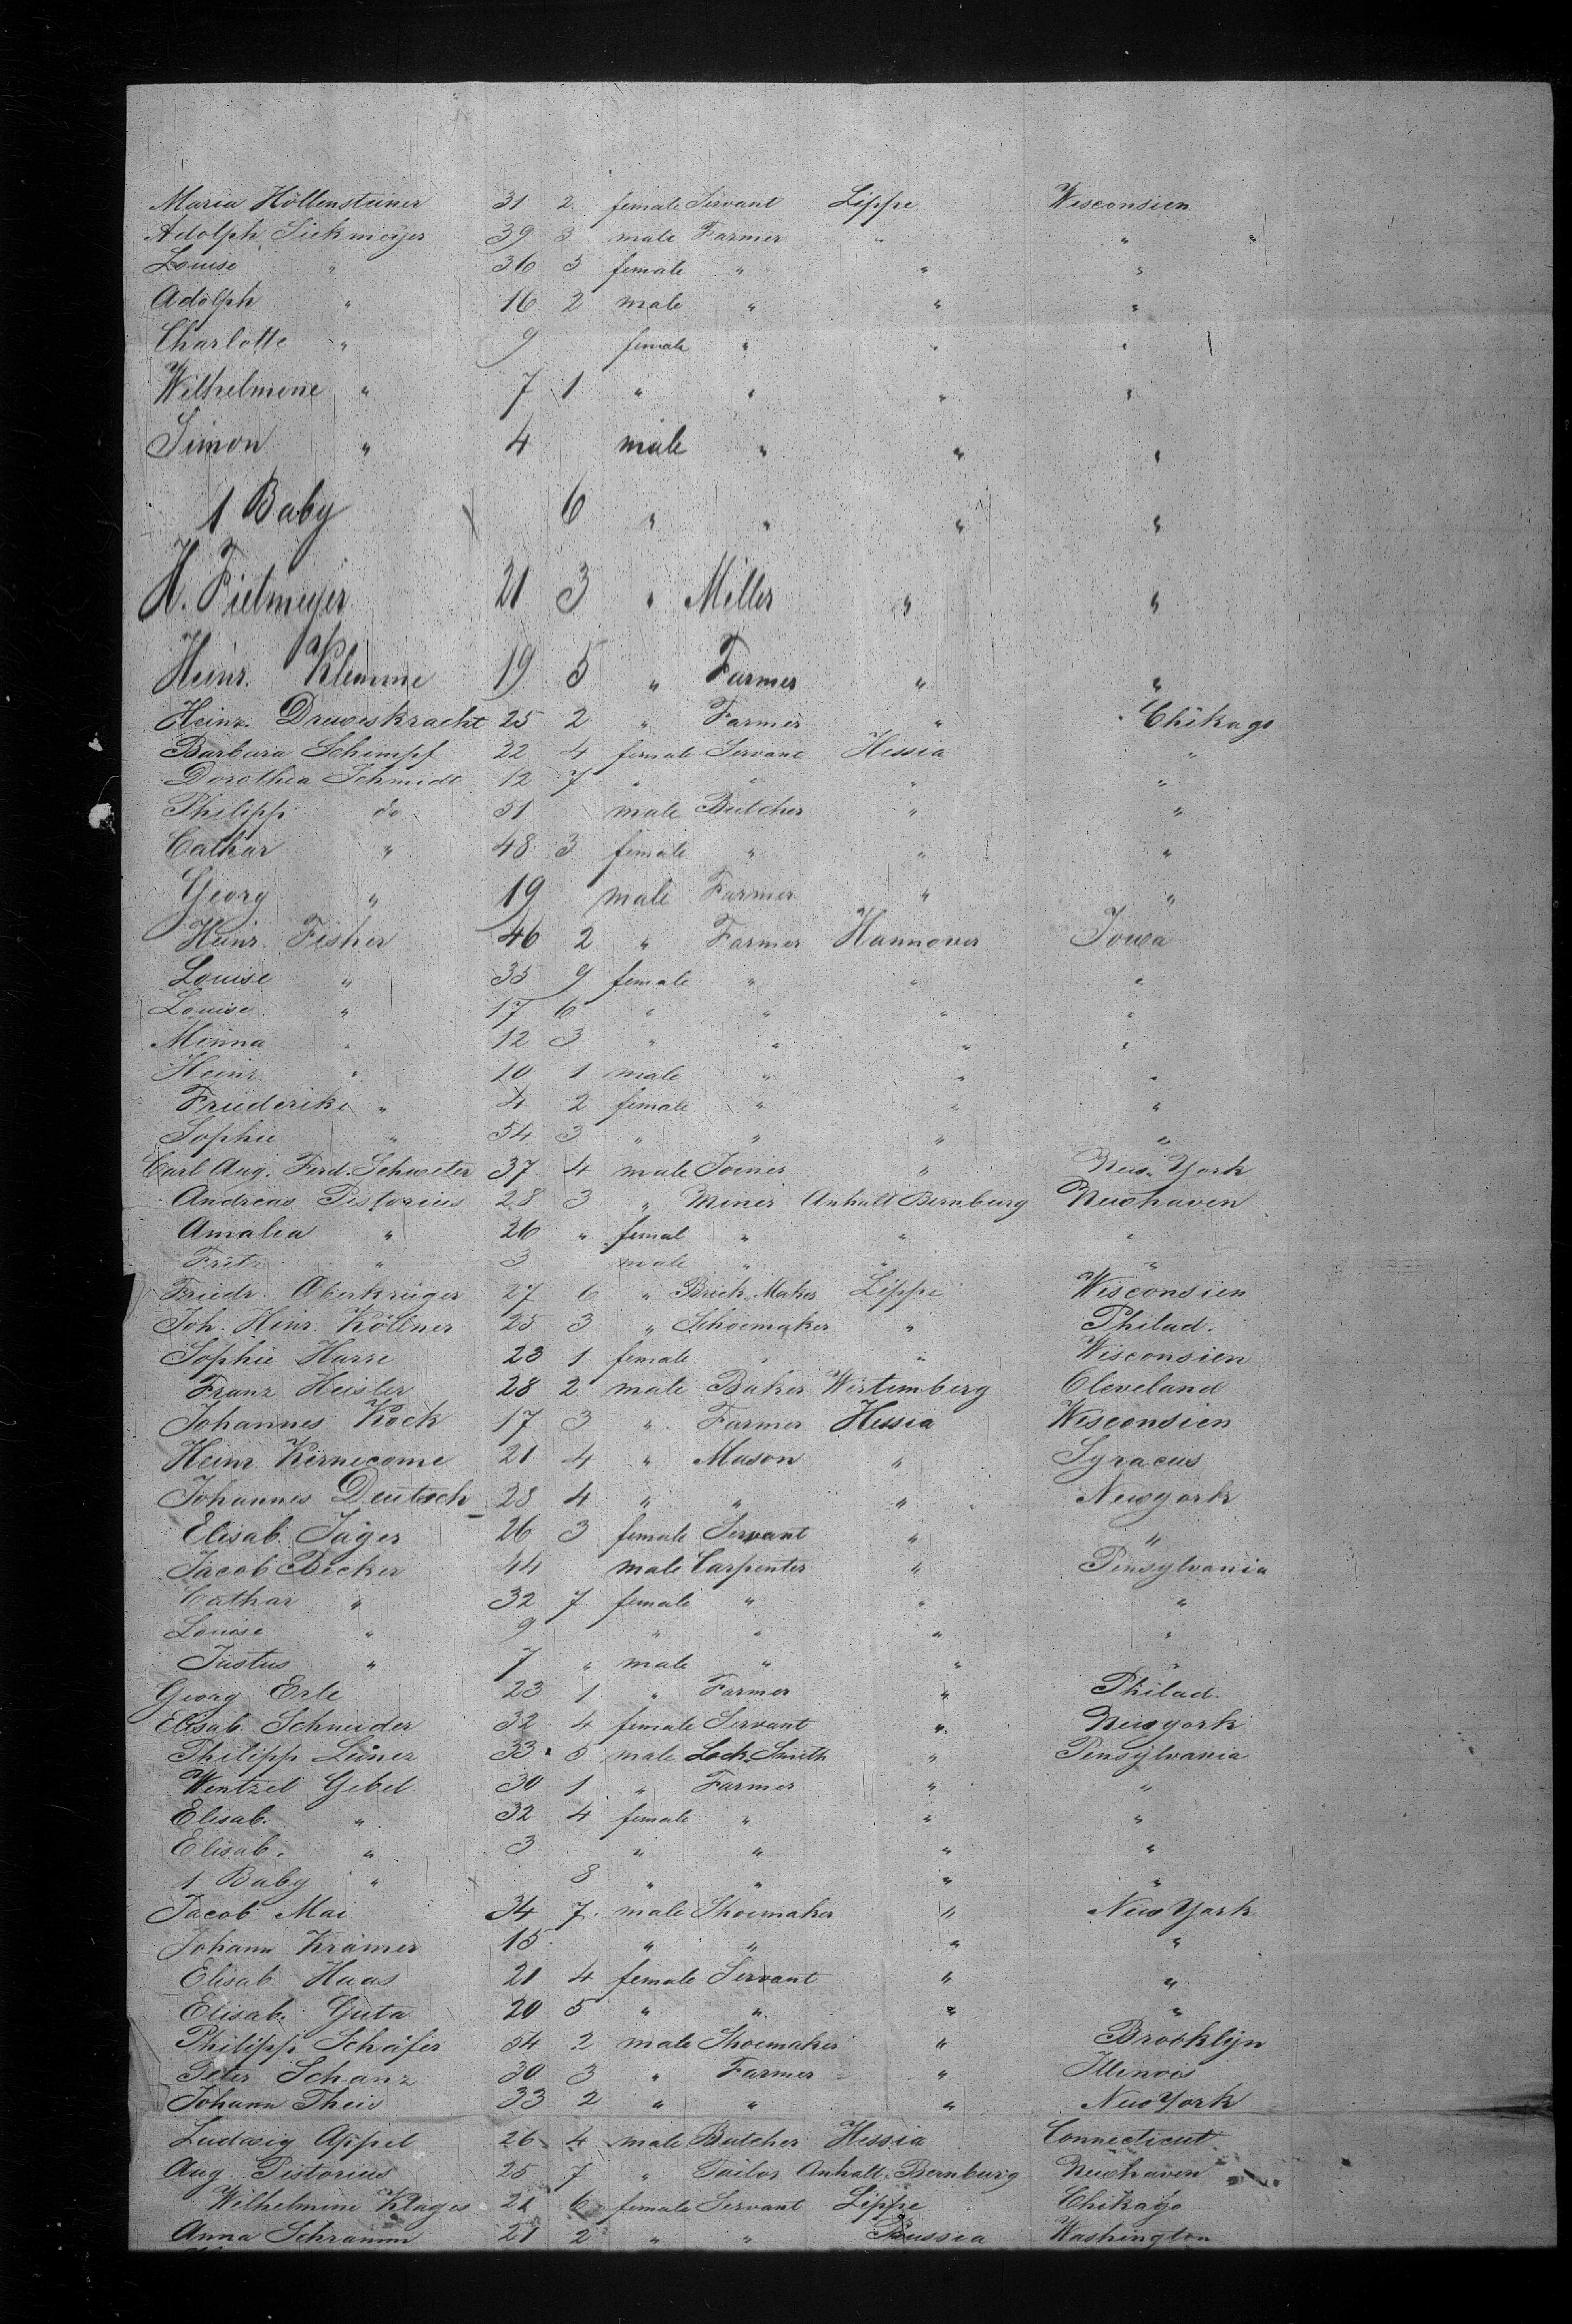 Maria Höllensteiner 31 2 female Servant Lippe Wisconsien
Adolph Siekmeyer 39 3 male Farmer " " "
Louise " 36 5 female " " "
Adolph " 16 2 male " " "
Charlotte " 9 female " " "
Wilhelmine " 7 1 " " " "
Simon " 4 male " " "
1 Baby 6 " " " "
H. Fielmeyer 21 3 " Miller " "
Heinr. Klemme 19 5 " Farmer " "
Heinr. Dreweskracht 25 2 " Farmer " Chikago
Barbara Schimpf 22 4 female Servant Hessia "
Dorothea Schmidt 12 7 " " " "
Philipp do 51 male Butcher " "
Cathar " 48 3 female " " "
Georg " 19 male Farmer " "
Heinr. Fisher 46 2 " Farmer Hannover Iowa
Louise " 35 9 female " " "
Louise " 17 6 " " " "
Minna " 12 3 " " " "
Heinr. " 10 1 male " " "
Friederike " 4 2 female " " "
Sophie " 54 3 " " " "
Carl Aug. Ferd. Schweter 37 4 male Joiner " New-York
Andreas Pistorius 28 3 " Miner Anhalt Bernburg Newhaven
Amalia " 26 " femal " " "
Fritz " 3 male " " "
Friedr. Aberkrüger 27 6 " Brick Maker Lippe Wisconsien
Joh. Hinr. Köllner 25 3 " Schoemaker " Philad.
Sophie Harre 23 1 female " " Wisconsien
Franz Heisler 28 2 male Baker Wirtemberg Cleveland
Johannes Kock 17 3 " Farmer Hessia Wisconsien
Heinr. Kirnecome 21 4 " Mason " Syracus
Johannes Deutsch 28 4 " " " Newyork
Elisab. Jäger 26 3 female Servant " "
Jacob Becker 44 male Carpenter " Pensylvania
Cathar " 32 7 female " " "
Louise " 9 " " " "
Justus " 7 " male " " "
Georg Erle 23 1 " Farmer " Philad.
Elisab. Schneider 32 4 female Servant " Newyork
Philipp 33 5 male Lock Smith " Pensylvania
Wentzel Gebel 30 1 " Farmer " "
Elisab. " 32 4 female " " "
Elisab. " 3 " " " "
1 Baby " 8 " " " "
Jacob Mai 34 7 male Shoemaker " New York
Johann Krämer 15 " " " "
Elisab. Haas 21 4 female Servant " "
Elisab. Guta 20 5 " " " "
Philipp Schäfer 34 2 male Shoemaker " Brooklijn
Peter Schanz 30 3 " Farmer " Illinois
Johann Theis 33 2 " " " New York
Ludwig Appel 26 4 male Butcher Hessia Connecticut
Aug. Pistorius 25 7 " Tailor Anhalt-Bernburg Newhaven
Wilhelmine Klages 21 6 female Servant Lippe Chikago
Anna Schramm 21 2 " " Prussia Washington